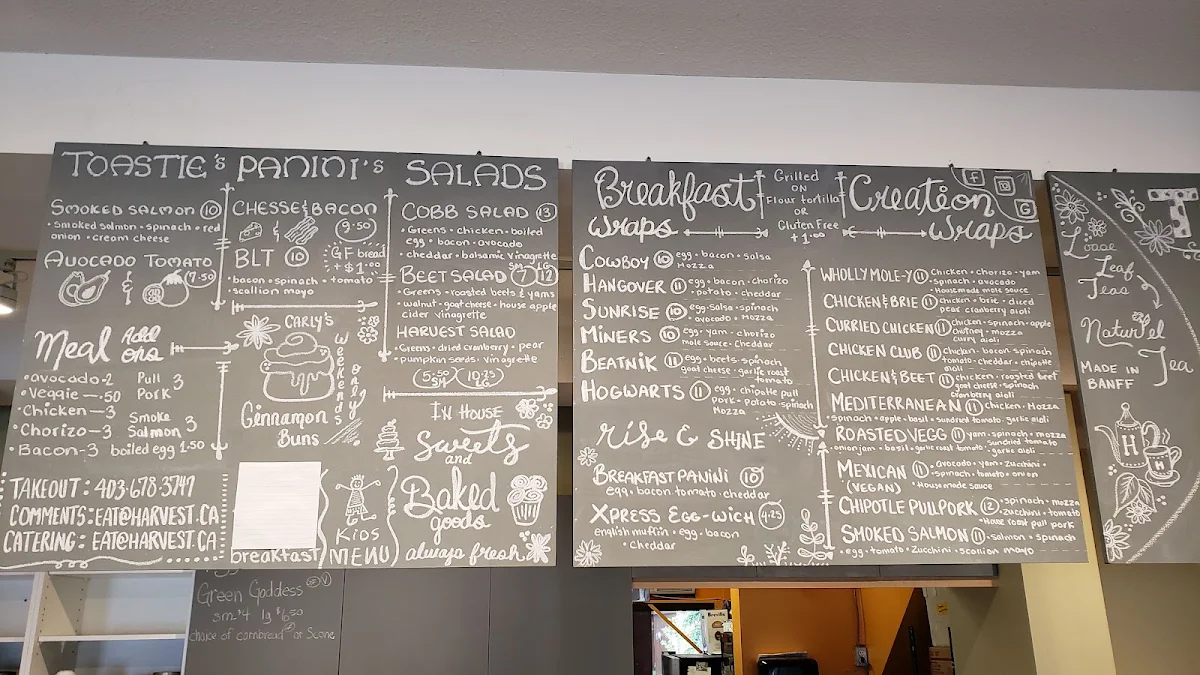 TOASTIE'S PANINI'S SALADS
SMOKED SALMON 10
• Smoked salmon • spinach • red
onion • cream cheese
AVOCADO TOMATO
7.50
CHESSE & BACON
9.50
BLT 10
GF bread
+ $1.00
• bacon • spinach • tomato
• scallion mayo
COBB SALAD 13
• Greens • chicken • boiled
egg • bacon • avocado
• cheddar • balsamic vinaigrette
SM LG
BEET SALAD 7 12
• Greens • roasted beets & yams
• walnut • goat cheese • house apple
cider vinagrette
HARVEST SALAD
• Greens • dried cranberry • pear
• pumpkin seeds • vinagrette
5.50 SM 10.25 LG
Meal Add ons
• avocado - 2
• Veggie — .50
• Chicken — 3
• Chorizo — 3
• Bacon - 3
Pull Pork 3
Smoke Salmon 3
boiled egg 1.50
CARLY'S
Cinnamon
Buns
Weekends only
IN HOUSE
Sweets
and
Baked
goods
always fresh
TAKEOUT: 403-678-3747
COMMENTS: EAT@HARVEST.CA
CATERING: EAT@HARVEST.CA
breakfast
Kids
MENU
Green Goddess GF V
sm $4 lg $6.50
choice of cornbread or Scone
Breakfast
Wraps
Grilled
ON
Flour tortilla
OR
Gluten Free
+ 1.00
Creation
Wraps
f
G
COWBOY 10 egg • bacon • salsa
Mozza
HANGOVER 11 egg • bacon • chorizo
• potato • cheddar
SUNRISE 10 egg • salsa • spinach
• avocado • mozza
MINERS 10 egg • yam • chorizo
mole sauce • cheddar
BEATNIK 11 egg • beets • spinach
goat cheese • garlic roast
tomato
HOGWARTS 11 • egg • chipotle pull
pork • potato • spinach
Mozza
rise & SHINE
BREAKFAST PANINI 10
egg • bacon • tomato • cheddar
XPRESS EGG-WICH 4.25
english muffin • egg • bacon
• cheddar
WHOLLY MOLE-Y 11 Chicken • chorizo • yam
• spinach • avocado
• Housemade mole sauce
CHICKEN & BRIE 11 chicken • brie • diced
pear • cranberry aioli
CURRIED CHICKEN 11 chicken • spinach • apple
• mozza
curry aioli
CHICKEN CLUB 11 chicken • bacon • spinach
tomato • cheddar • chipotle
aioli
CHICKEN & BEET 11 chicken • roasted beet
goat cheese • spinach
cranberry aioli
MEDITERRANEAN 11 chicken • Mozza
spinach • apple • basil • sundried tomato • garlic aioli
ROASTED VEGG 11 yam • spinach • mozza
• onion jam • basil • garlic roast tomato • sundried tomato
• garlic aioli
MEXICAN 11 • avocado • yam • zucchini •
(VEGAN) • spinach • tomato • onion
• Housemade sauce
CHIPOTLE PULLPORK 12 • spinach • mozza
• zucchini • tomato
• House roast pull pork
SMOKED SALMON 11 • salmon • spinach
• egg • tomato • zucchini • scallion mayo
T
Loose
Leaf
Teas
Naturel
Tea
MADE IN
BANFF
H
H